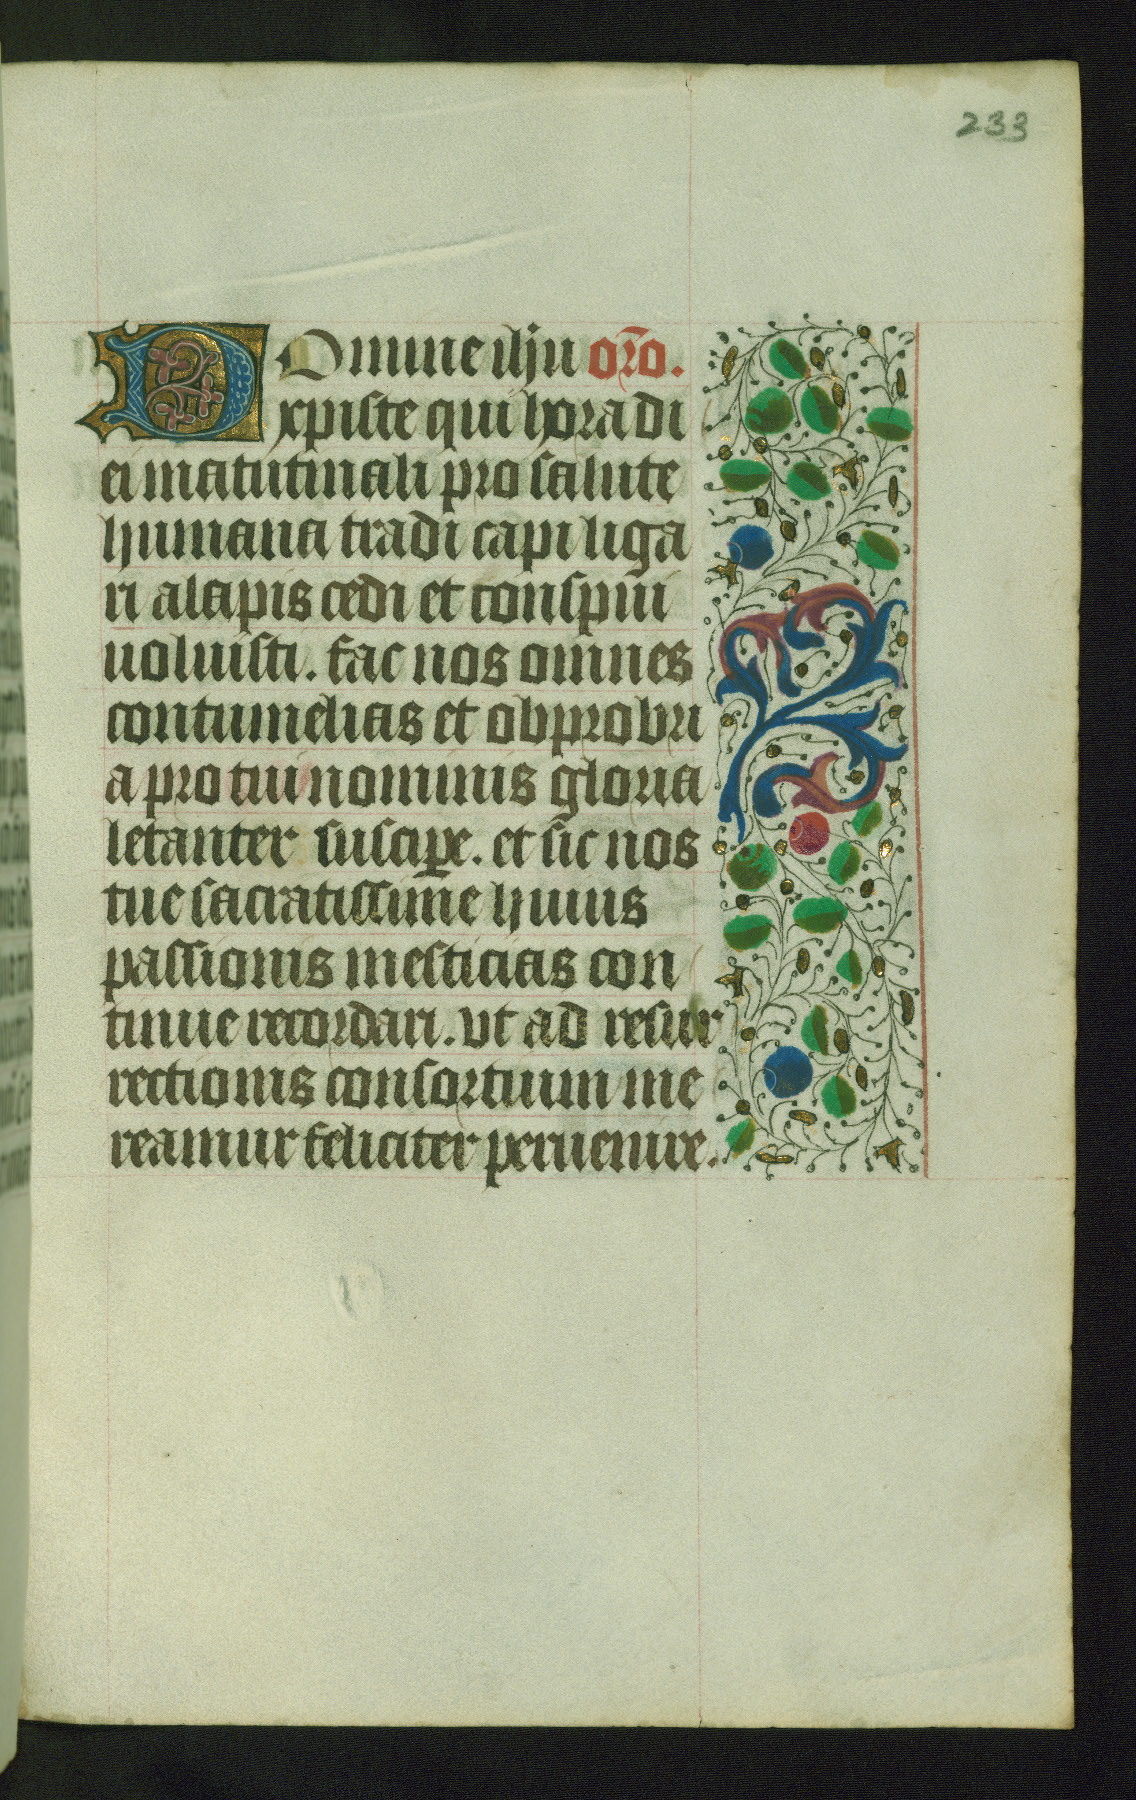 233
Domine ihu oro.
xpiste qui hora di
ei matutinali pro salute
humana tradi capi liga
ri alapis cedi et conspui
uoluisti. fac nos omnes
contumelias et obprobri
a pro tui nominis gloria
letanter suscipe. et sic nos
tue sacratissime huius
passionis mesticias con
tinue recordari. ut ad resur
rectionis consortium me
reamur feliciter peruenire.